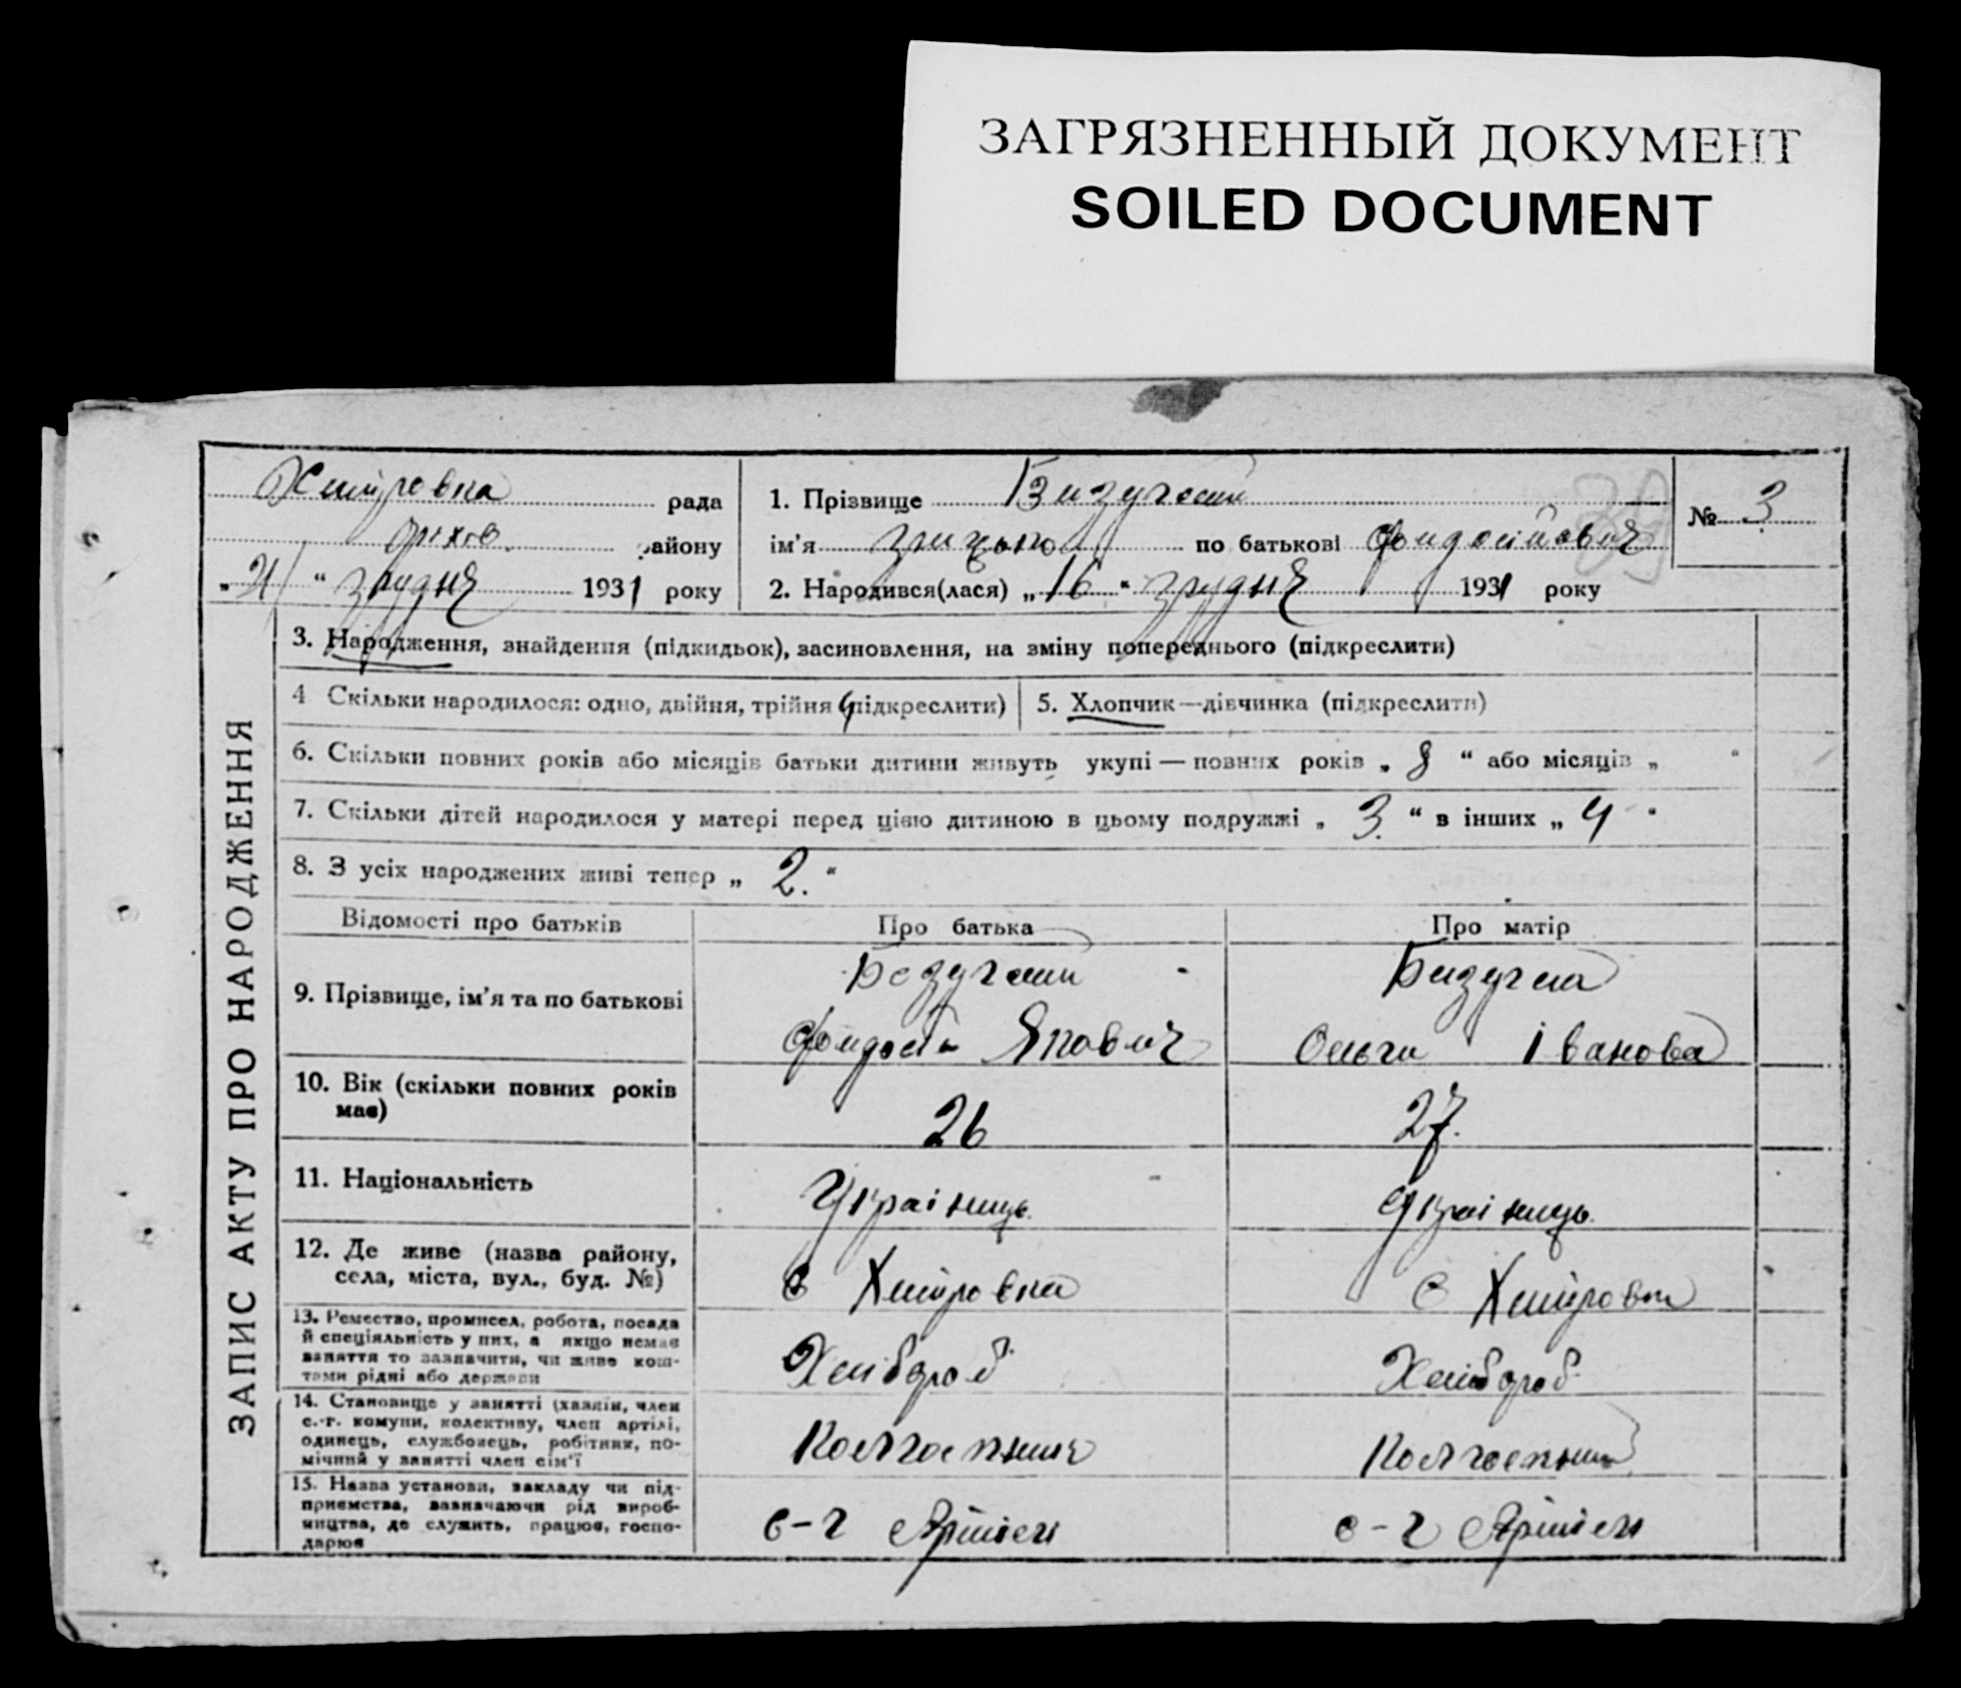 ЗАГРЯЗНЕННЫЙ ДОКУМЕНТ
SOILED DOCUMENT
рада
району
" 1931 року
1. Прізвище
ім'я по батькові
2. Народився(лася) „16" грудня 1931 року
№ 3
ЗАПИС АКТУ ПРО НАРОДЖЕННЯ
3. Народження, знайдення (підкидьок), засиновлення, на зміну попереднього (підкреслити)
4 Скільки народилося: одно, двійня, трійня (підкреслити)
5. Хлопчик—дівчинка (підкреслити)
6. Скільки повних років або місяців батьки дитини живуть укупі — повних років „ 8 " або місяців „ "
7. Скільки дітей народилося у матері перед цією дитиною в цьому подружжі „ 3. " в інших „ "
8. З усіх народжених живі тепер „ 2. "
Відомості про батьків
Про батька
Про матір
9. Прізвище, ім'я та по батькові
Івановa
10. Вік (скільки повних років
має)
26
27.
11. Національність
Українць
Українць
12. Де живе (назва району,
села, міста, вул., буд. №)
с
с
13. Ремество, промисел, робота, посада
й спеціяльність у них, а якщо немає
заняття то зазначити, чи живе кош-
тами рідні або держави
Хлібороб
Хлібороб
14. Становище у занятті (хазяїн, член
с.-г. комуни, колективу, член артілі,
одинець, службовець, робітник, по-
мічний у занятті член сім'ї
Колгоспник
15. Назва установи, закладу чи під-
приємства, зазначаючи рід вироб-
ництва, де служить, працює, госпо-
дарює
с-г Артіль
с-г Артіль